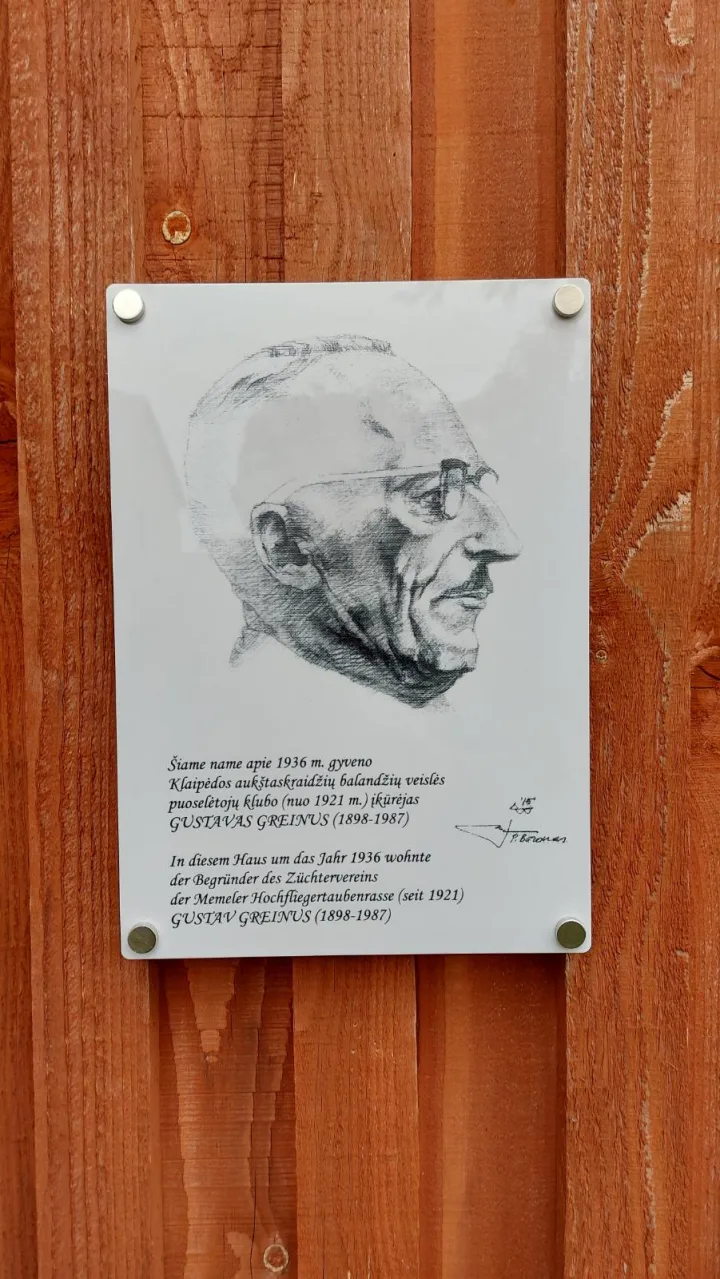 Šiame name apie 1936 m. gyveno
Klaipėdos aukštaskraidžių balandžių veislės
puoselėtojų klubo (nuo 1921 m.) įkūrėjas
GUSTAVAS GREINUS (1898-1987)
In diesem Haus um das Jahr 1936 wohnte
der Begründer des Züchtervereins
der Memeler Hochfliegertaubenrasse (seit 1921)
GUSTAV GREINUS (1898-1987)